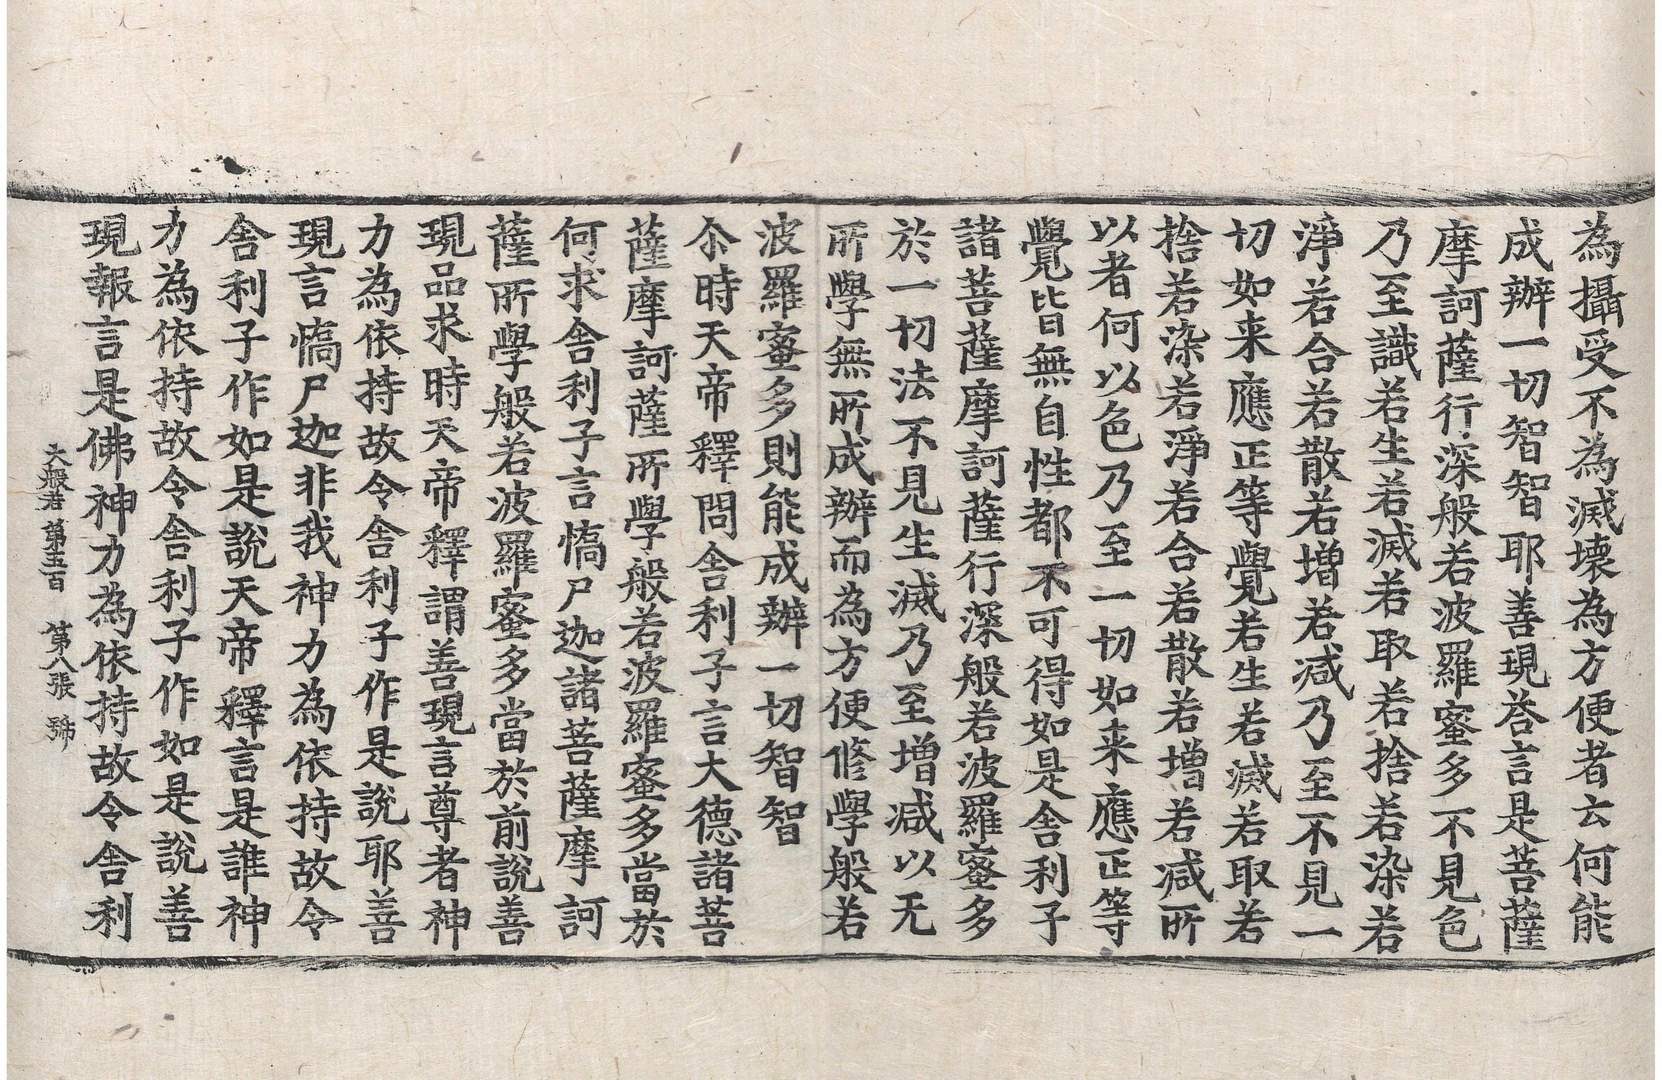 為攝受不為滅壞為方便者云何能
成辦一切智智耶善現荅言是菩薩
摩訶薩行深般若波羅蜜多不見色
乃至識若生若滅若取若捨若染若
淨若合若散若增若减乃至不見一
切如来應正等覺若生若滅若取若
捨若染若淨若合若散若增若减所
以者何以色乃至一切如来應正等
覺皆無自性都不可得如是舍利子
諸菩薩摩訶薩行深般若波羅蜜多
於一切法不見生滅乃至增减以无
所學無所成辦而為方便修學般若
波羅蜜多則能成辦一切智智
尒時天帝釋問舍利子言大德諸菩
薩摩訶薩所學般若波羅蜜多當於
何求舍利子言憍尸迦諸菩薩摩訶
薩所學般若波羅蜜多當於前說善
現品求時天帝釋謂善現言尊者神
力為依持故令舍利子作是說耶善
現言憍尸迦非我神力為依持故令
舍利子作如是說天帝釋言是誰神
力為依持故令舍利子作如是說善
現報言是佛神力為依持故令舍利
大般若第五百 第八張 號